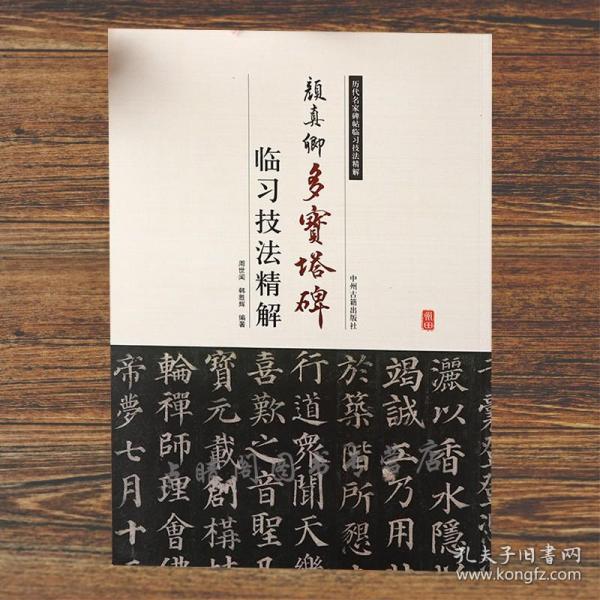 历代名家碑帖临习技法精解
颜真卿多寳塔碑
临习技法精解
周世闻 韩胜辉 编著
中州古籍出版社
灑以香水隱
竭誠子乃用
於築階所懇
行道衆聞天樂
喜歎之音聖
寳元載創構
輪禪師理會佛
帝夢七月十
孔夫子旧书网
www.kongfz.com